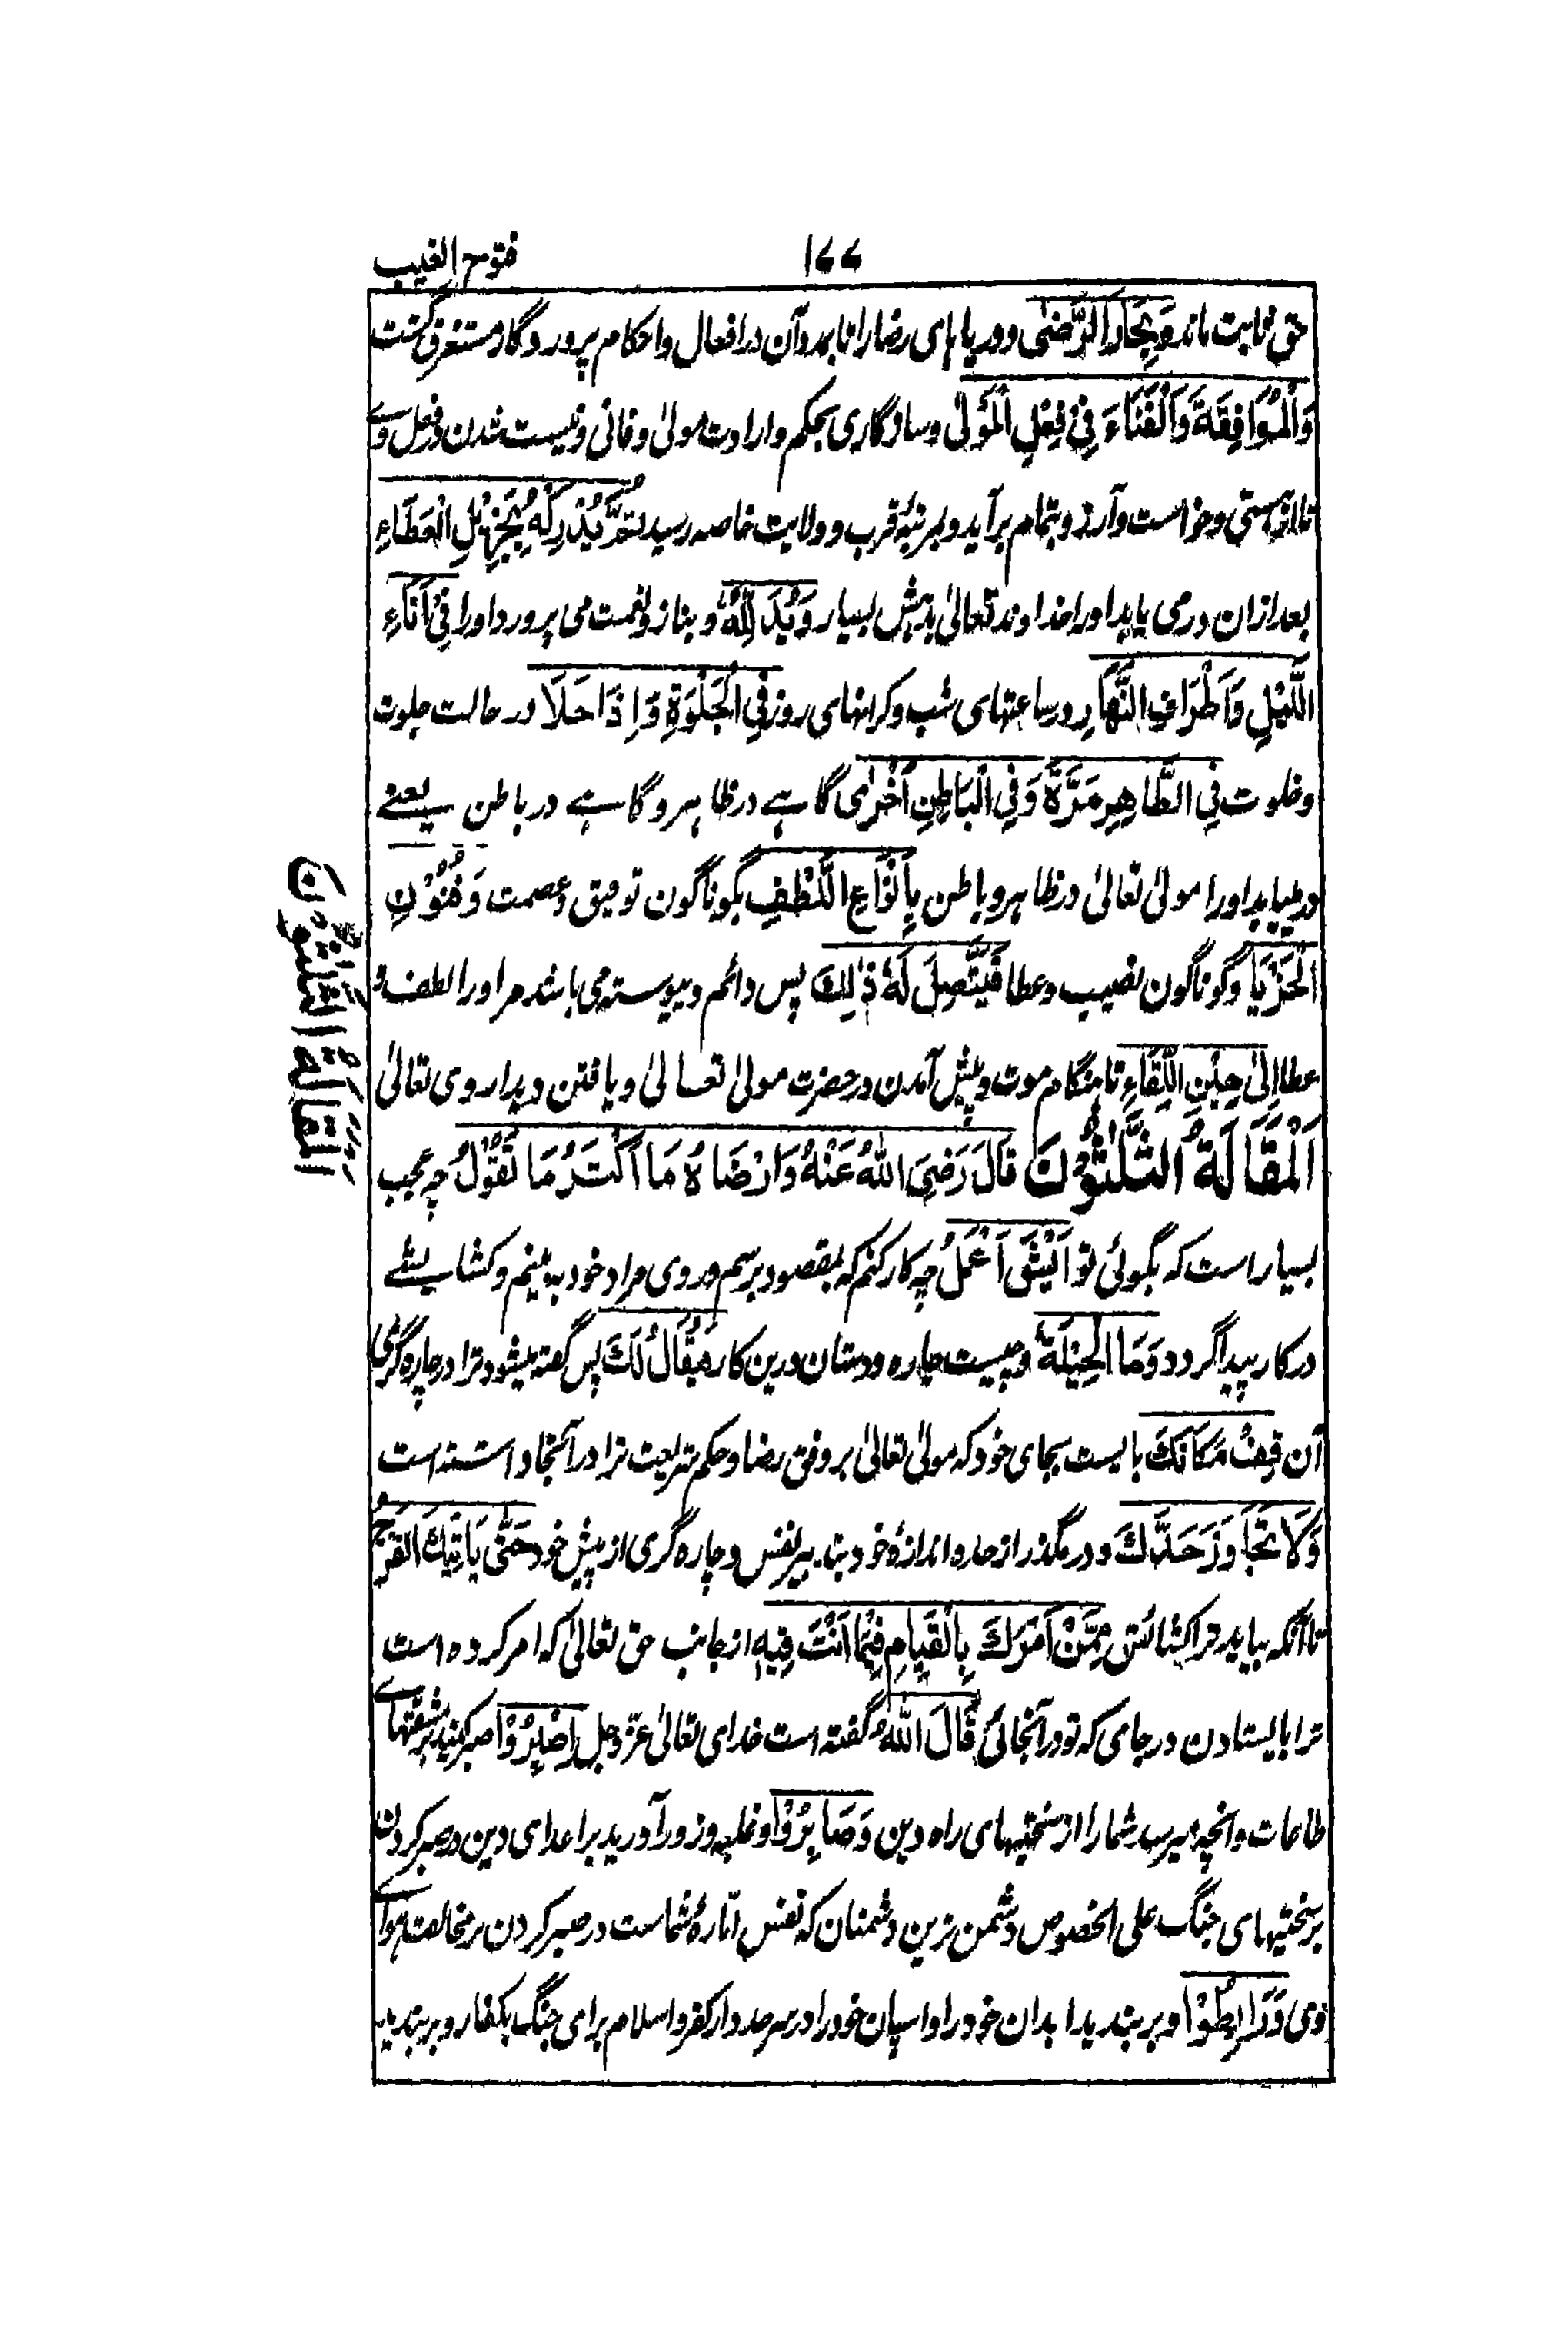 ۱۷۷
فتوح الغیب
حق ثابت ماند وَبِحَارَ الرَّضٰى و دریاهای رضا را تا بمرد آن در افعال و احکام پروردگار مستغرق گشت
وَالْمُوَافِقَةَ وَالْفَنَاءَ فِيْ فِعْلِ الْمَوْلٰى وسازگاری بحکم و ارادت مولیٰ و فانی و نیست شدن در فعل وے
تا از هستی و خواست و آرزو بتمام برآید و بمرتبۀ قرب و ولایت خاصه رسید ثُمَّ يُدْرِكُهُ بِجَزِيْلِ الْعَطَاءِ
بعد ازان درمی یابد او را خداوند تعالیٰ بدہش بسیار وَيُدَلِّلُهُ و بناز و نعمت می پرورد او را فِيْ اٰنَاءِ
اللَّيْلِ وَاَطْرَافِ النَّهَارِ در ساعتهای شب و کرانهای روز فِي الْجَلْوَةِ وَاِذَا خَلَا در حالت جلوت
و خلوت فِي الظَّاهِرِ مَرَّةً وَفِي الْبَاطِنِ اُخْرٰى گاہے در ظاہر و گاہے در باطن یعنے
درمییابد او را مولیٰ تعالیٰ در ظاہر و باطن بِاَنْوَاعِ اللُّطْفِ بگوناگون توفیق و عصمت وَفُنُوْنِ
الْحَزَايَا و گوناگون نصیب و عطا فَيَتَّصِلَ لَهٗ ذٰلِكَ پس دائم و پیوسته می باشد مر او را لطف و
عطا اِلٰى حِيْنِ اللِّقَاءِ تا ہنگام موت و پیش آمدن در حضرت مولیٰ تعالیٰ و یافتن دیدار وی تعالیٰ
اَلْمَقَالَةُ الثَّلٰثُوْنَ قَالَ رَضِيَ اللهُ عَنْهُ وَاَرْضَاهُ مَا اَكْثَرَ مَا تَقُوْلُ چه عجب
بسیار است که بگوئی تو اَيْشَ اَعْمَلُ چه کار کنم که بمقصود برسم و روی مراد خود به بینم و کشایشے
در کار پیدا گردد وَمَا الْحِيْلَةُ و چیست چاره و دستان درین کار فَيُقَالُ لَكَ پس گفته میشود ترا در چاره گری
آن قِفْ مَكَانَكَ بایست بجای خود که مولیٰ تعالیٰ بر وفق رضا و حکم شریعت ترا در آنجا داشته است
وَلَا تُجَاوِزْ حَدَّكَ و در مگذر از حد و اندازهٔ خود بتدبیر نفس و چاره گری از پیش خود حَتّٰى يَاْتِيَكَ الْفَرَجُ
تا آنکه بیاید ترا کشائش مِمَّنْ اَمَرَكَ بِالْقِيَامِ فِيْمَا اَنْتَ فِيْهِ از جانب حق تعالیٰ که امر کرده است
ترا بایستادن در جای که تو در آنجائی قَالَ اللهُ گفته است خدای تعالیٰ عز و جل اِصْبِرُوْا صبر کنید بر مشقتهاے
طاعات و آنچه میرسد شما را از سختیهای راه دین وَصَابِرُوْا و غلبه و زور آورید بر اعدای دین در صبر کردن
بر سختیهای جنگ علی الخصوص دشمن ترین دشمنان که نفس امّارۀ شماست در صبر کردن بر مخالفت ہواے
وی وَرَابِطُوْا و بر بندید ابدان خود را و اسپان خود را در سرحد دار کفر و اسلام برای جنگ بکفار و بر بندید
المقالة الثلثون